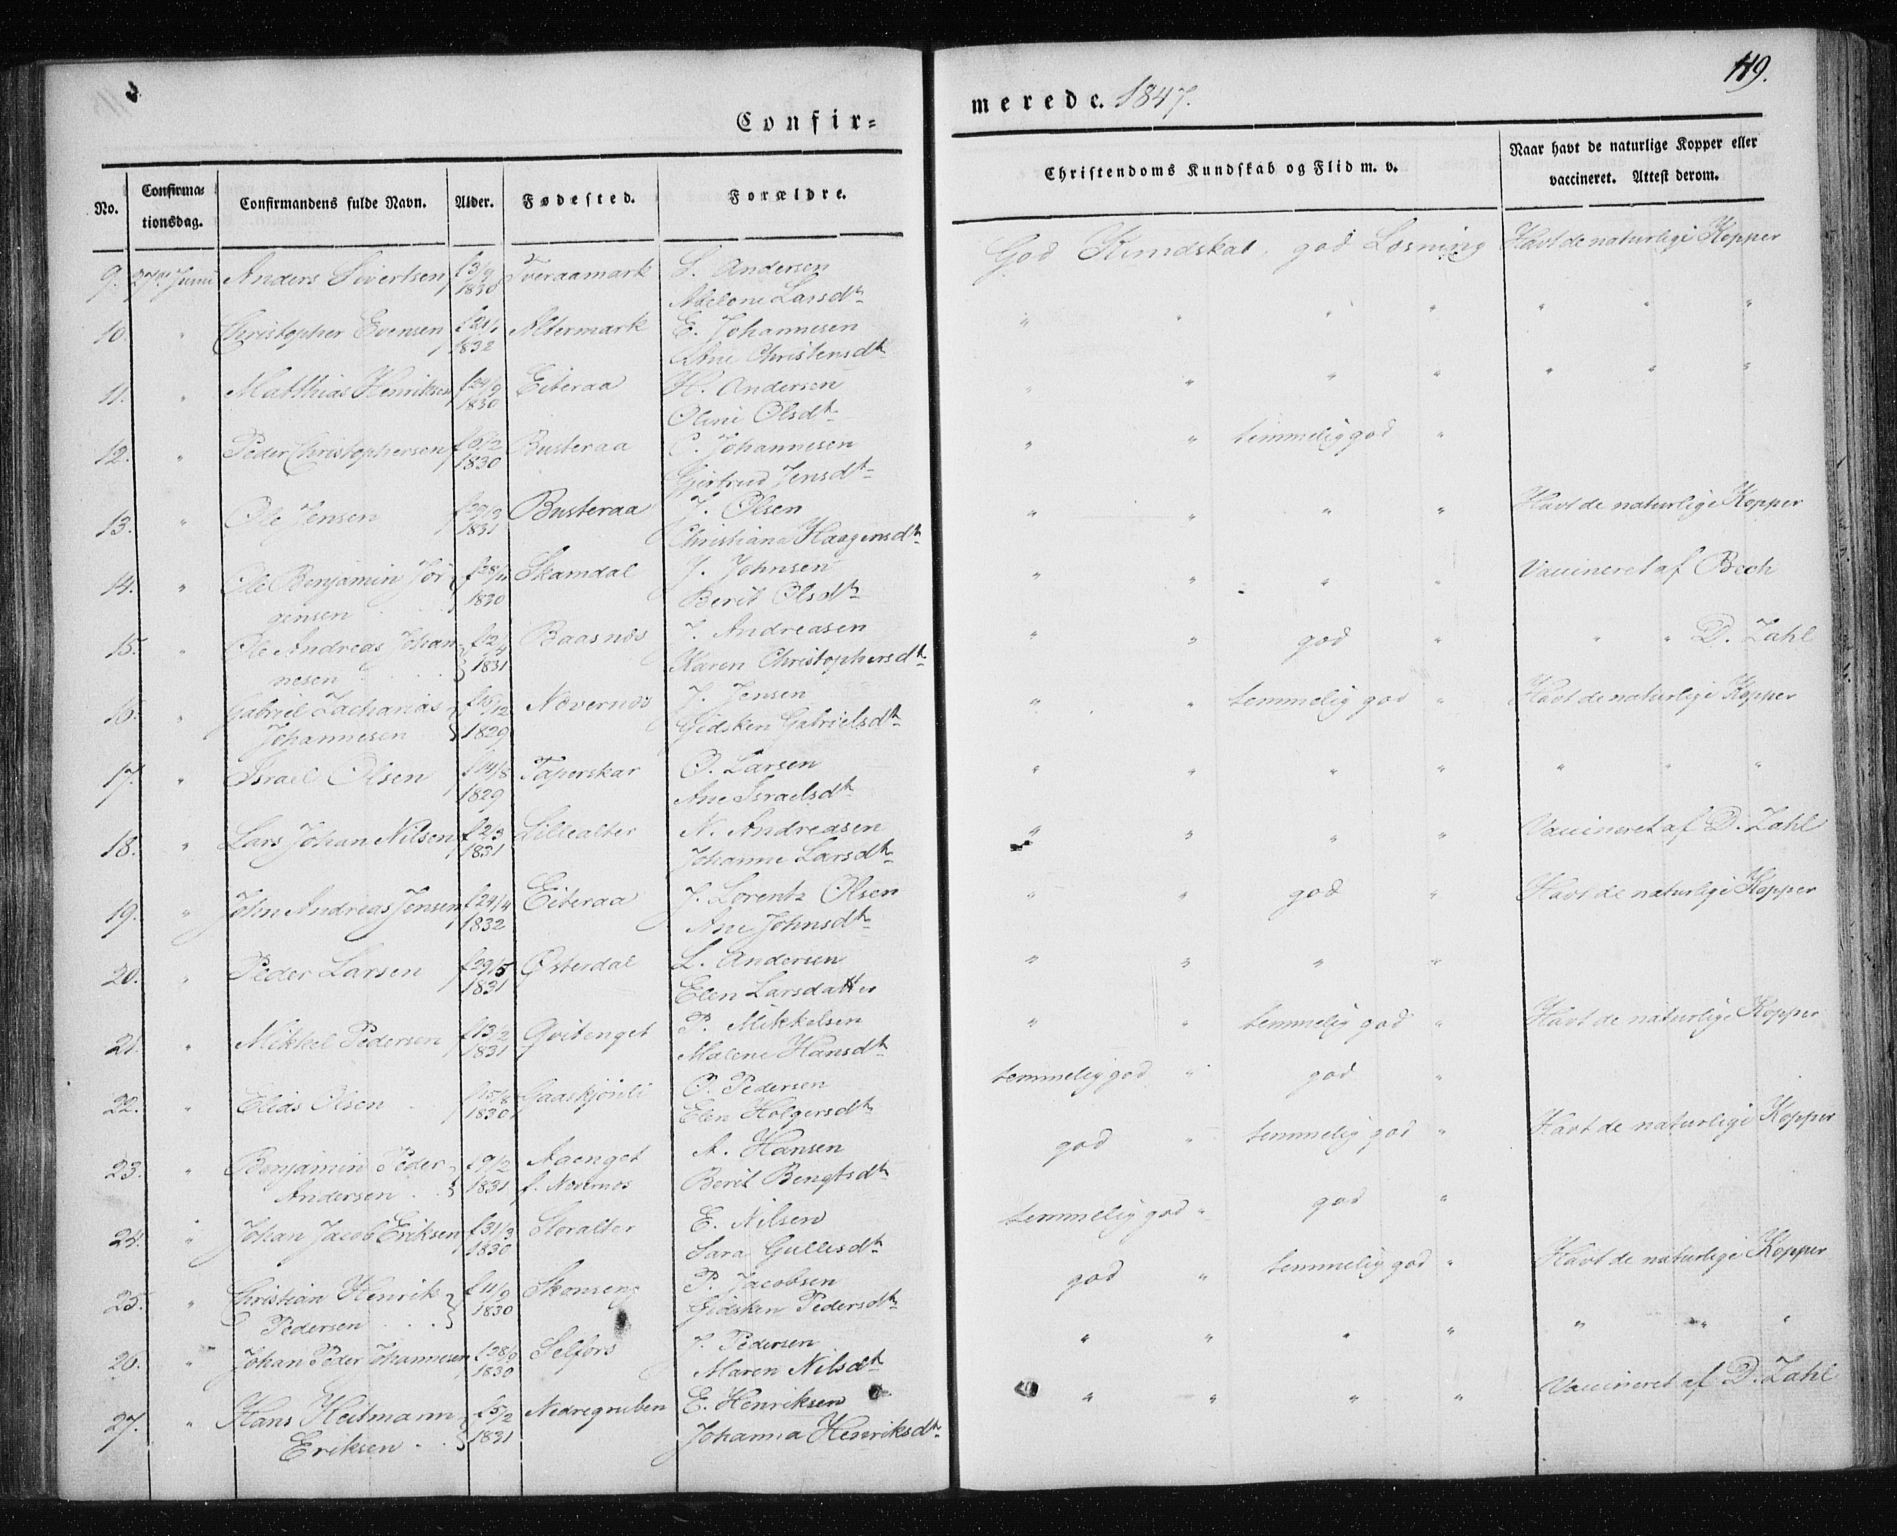 119.
Confir=
merede. 1847.
No.
Confirma-
tionsdag.
Confirmandens fulde Navn.
Alder.
Fødested.
Forældre.
Christendoms Kundskab og Flid m. v.
Naar havt de naturlige Kopper eller
vaccineret. Attest derom.
9. 27de Juni Anders Sivertsen f 3/9 Tveraamark S. Andersen God Kundskab, god Læsning Havt de naturlige Kopper
1830 Adelone Larsdtr
10. " Christopher Evensen Altermark E. Johannesen " " " " " " "
1832 Ane Christensdtr
11. " Matthias Henriksen f 24/9 Eiteraa H. Andersen " " " " " " "
1830 Oline Olsdtr
12. " Peder Christophersen Busteraa C. Johannesen " " temmelig god "
1830 Gjertrud Jensdtr
13. " Ole Jensen Busteraa J. Olsen " " " " Havt de naturlige Kopper
1831 Christiana Haagensdtr
14. " Ole Benjamin Jör- Skamdal J. Johnsen " " " " Vaccineret af Bech
gensen 1830 Berit Olsdtr
15. " Ole Andreas Johan Baasnæs J. Andreasen " " god " " " D. Zahl
nesen 1831 Karen Christophersdtr
16. " Gabriel Zacharias f 15/12 Nævernæs J. Jensen " " temmelig god " Havt de naturlige Kopper
Johannesen 1829 Gidsken Gabrielsdtr
17. " Israel Olsen f 14/8 Taperskar O. Larsen " " " " " " "
1829 Ane Israelsdtr
18. " Lars Johan Nilsen f 2/3 Lillealter N. Andreasen " " " " Vaccineret af D. Zahl
1831 Johanne Larsdtr
19. " John Andreas Jensen f 24/4 Eiteraa J. Lorentz Olsen " " god " Havt de naturlige Kopper
1832 Ane Johnsdtr
20. " Peder Larsen f 29/5 Østerdal L. Andersen " " " "
1831 Elen Larsdatter
21. " Mikkel Pedersen f 13/2 Qvitenget P. Mikkelsen " " temmelig god " Havt de naturlige Kopper
1831 Malene Hansdtr
22. " Elias Olsen f 15/8 Gaaskjönli O. Pedersen temmelig god " god "
1830 Elen Holgersdtr
23. " Benjamin Peder f 9/2 Aaenget A. Hansen god " temmelig god " Havt de naturlige Kopper
Andersen 1831 f. Nævernæs Berit Bengtsdtr
24. " Johan Jacob Eriksen f 31/3 Storalter E. Nilsen temmelig god " god "
1830 Sara Gullesdtr
25. " Christian Henrik f 11/9 Skonseng P. Jacobsen god " temmelig god " Havt de naturlige Kopper
Pedersen 1830 Gidsken Pedersdtr
26. " Johan Peder Johannesen Selfors J. Pedersen " " " " " " "
1830 Maren Nilsdtr
27. " Hans Heitmann f 5/2 Nedregruben E. Henriksen " " " " Vaccineret af D. Zahl
Eriksen 1831 Johanna Henriksdtr